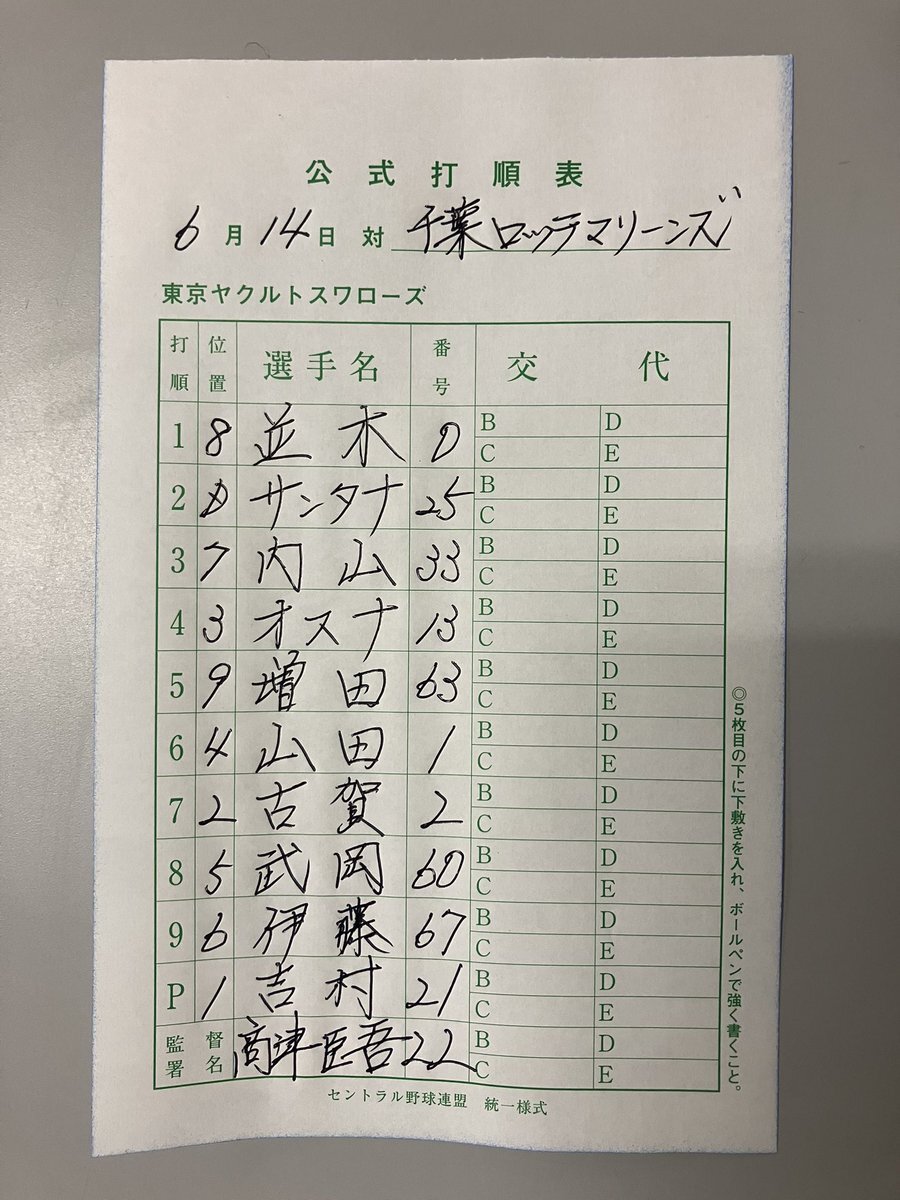 公式打順表
6月14日 対 千葉ロッテマリーンズ
東京ヤクルトスワローズ
打順 位置 選手名 番号 交代
1 8 並木 0 B D
C E
2 D サンタナ 25 B D
C E
3 7 内山 33 B D
C E
4 3 オスナ 13 B D
C E
5 9 増田 63 B D
C E
6 4 山田 1 B D
C E
7 2 古賀 2 B D
C E
8 5 武岡 60 B D
C E
9 6 伊藤 67 B D
C E
P 1 吉村 21 B D
C E
監督署名 高津臣吾 22 B D
C E
セントラル野球連盟 統一様式
◎5枚目の下に下敷きを入れ、ボールペンで強く書くこと。